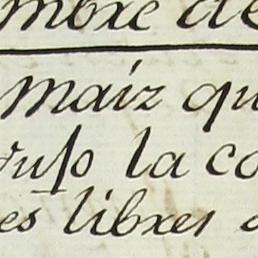 mbre de
Maíz qu
puso la co
es libres